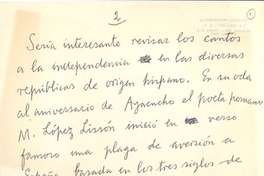 2
1
Sería interesante revisar los cantos
a la independencia en las diversas
repúblicas de origen hispano. En su oda
al aniversario de Ayacucho el poeta peruano
M. López Lissón inició en verso
famoso una plaga de aversión a
España basada en los tres siglos de